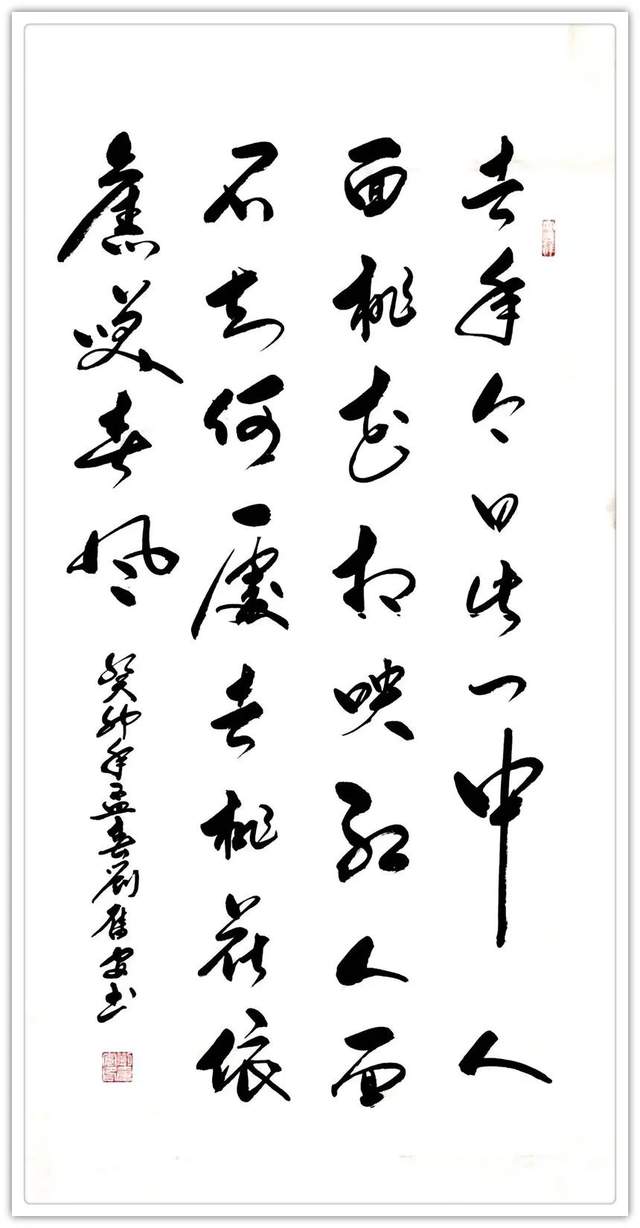 去年今日此门中人
面桃花相映红人面
不知何處去桃花依
舊咲春風
癸卯年孟春劉安书